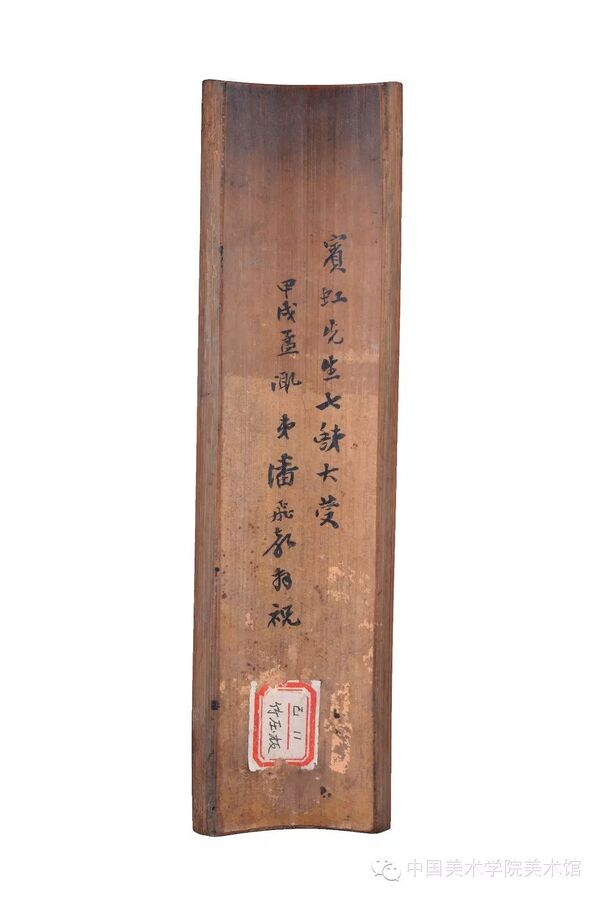 賓虹先生七秩大慶
甲戌孟陬弟潘飛聲拜祝
己 11
竹压板
中国美术学院美术馆